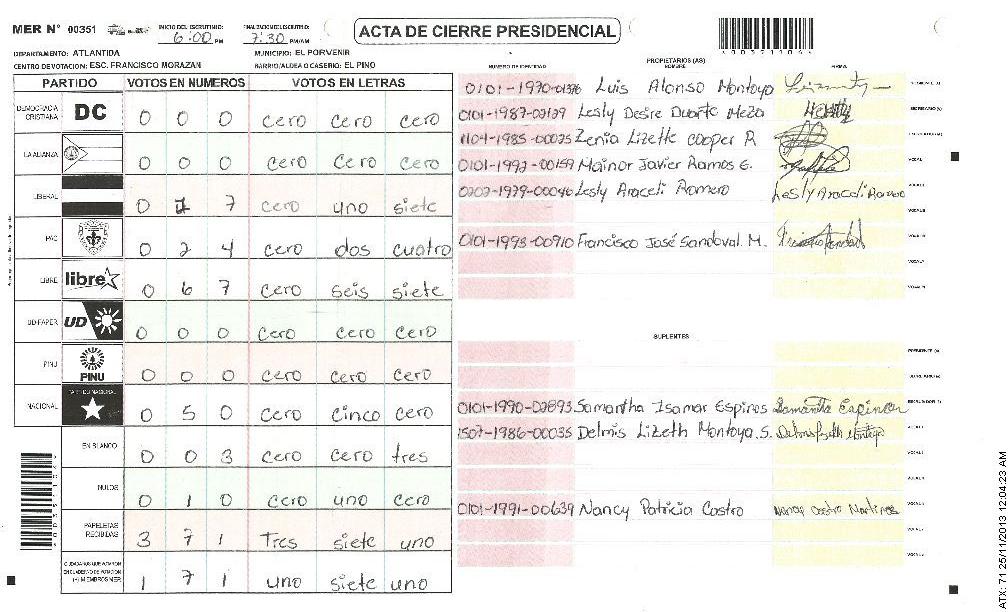 MER N° 00351
INICIO DEL ESCRUTINIO: 6:00 PM
FINALIZACION ESCRUTINIO: 7:30 PM/AM
ACTA DE CIERRE PRESIDENCIAL
DEPARTAMENTO: ATLANTIDA
MUNICIPIO: EL PORVENIR
CENTRO DE VOTACION: ESC. FRANCISCO MORAZAN
BARRIO/ALDEA O CASERIO: EL PINO
PARTIDO VOTOS EN NUMEROS VOTOS EN LETRAS
DEMOCRACIA CRISTIANA DC 0 0 0 cero cero cero
LA ALIANZA 0 0 0 cero cero cero
LIBERAL 0 1 7 cero uno siete
PAC 0 2 4 cero dos cuatro
LIBRE libre 0 6 7 cero seis siete
UD-FAPER UD 0 0 0 cero cero cero
PINU PINU 0 0 0 cero cero cero
NACIONAL PARTIDO NACIONAL 0 5 0 cero cinco cero
EN BLANCO 0 0 3 cero cero tres
NULOS 0 1 0 cero uno cero
PAPELETAS RECIBIDAS 3 7 1 Tres siete uno
CIUDADANOS QUE VOTARON EN CUADERNO DE VOTACION (+) MIEMBROS MER 1 7 1 uno siete uno
PROPIETARIOS (AS)
NUMERO DE IDENTIDAD NOMBRE FIRMA
Luis Alonso Montoya PRESIDENTE (A)
0101-1987-02129 Lesly Desire Duarte Meza SECRETARIO (A)
1104-1985-00025 Zenia Lizette cooper R
0101-1992-00159 Mainor Javier Ramos G. VOCAL
Lesly Araceli Romero Lesly Araceli Romero
0101-1993-00910 Francisco José Sandoval. M.
SUPLENTES
PRESIDENTE (A)
SECRETARIO (A)
0101-1990-02893 Samantha Isamar Espinos
1507-1986-00035 Delmis Lizeth Montoya. S.
0101-1991-00639 Nancy Patricia Castro Nancy Castro Martinez
ATX: 71 25/11/2013 12:04:23 AM